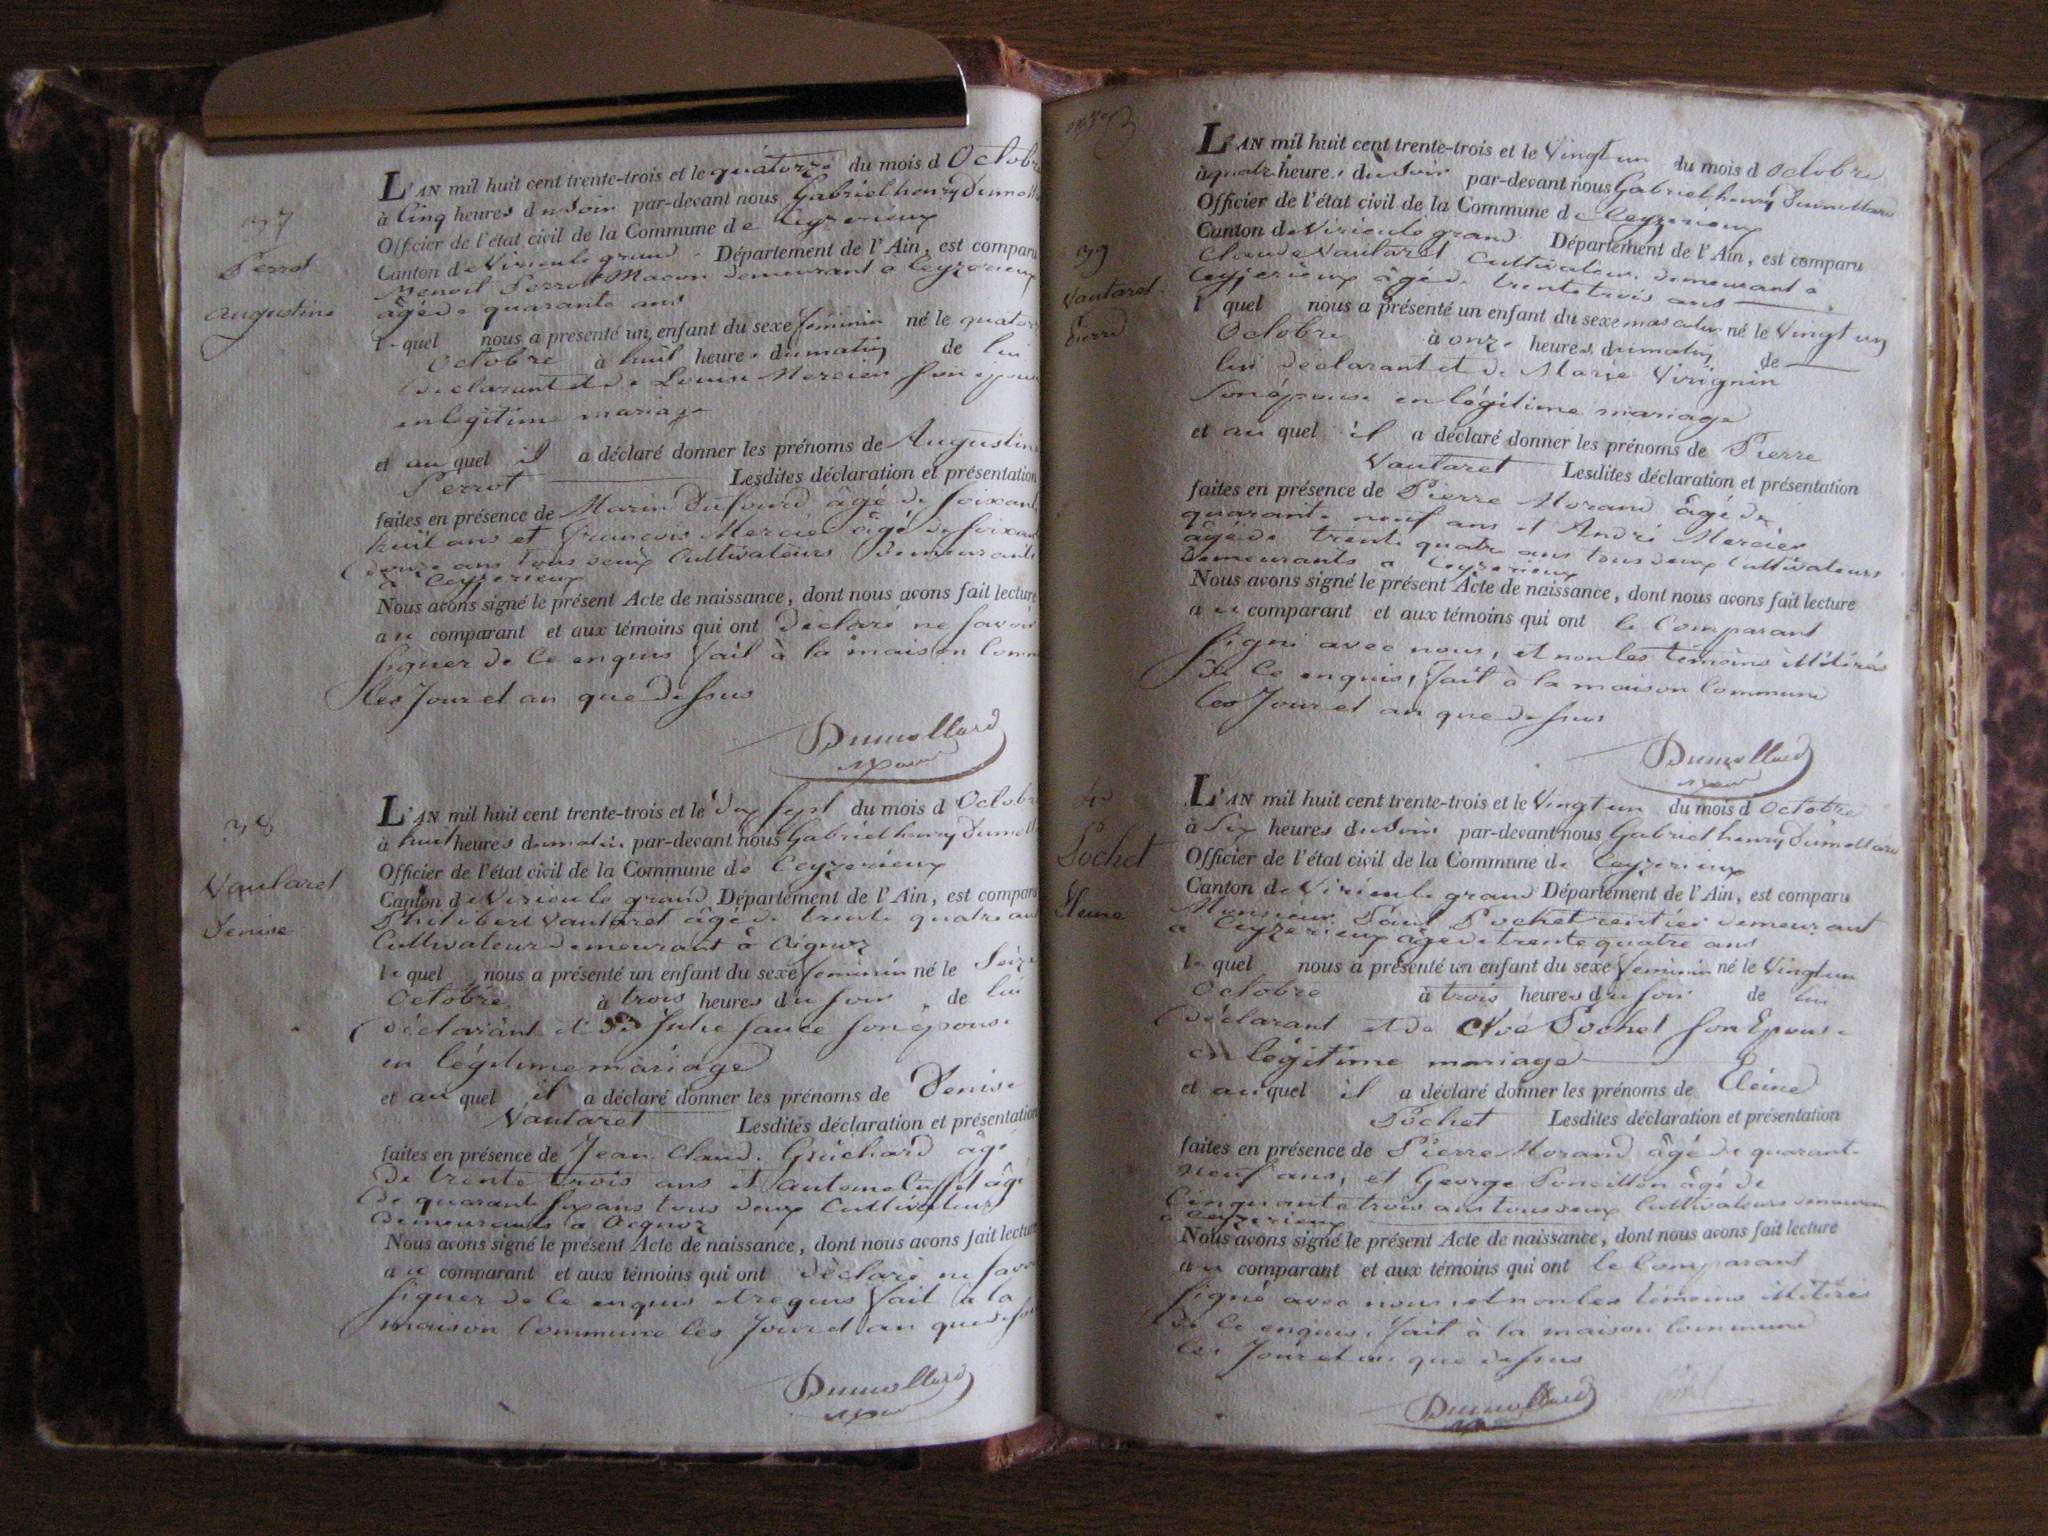 37
Perrot
augustine
L'AN mil huit cent trente-trois et le quatorze du mois d Octobre
à Cinq heures du Soir par-devant nous Gabriel henry Dumoll
Officier de l'état civil de la Commune de Ceyzerieux
Canton de Virieu le grand. Département de l'Ain, est comparu
Benoit Perrot Macon demeurant a Ceyzerieux
âgé de quarante ans
le quel nous a présenté un enfant du sexe feminin né le quator
Octobre à huit heures du matin de lui
déclarant et de Louise Mercier son epouse
en legitime mariage
et au quel il a déclaré donner les prénoms de Augustine
Perrot Lesdites déclaration et présentation
faites en présence de Marin Dufourd âgé de soixante
huit ans et francois Mercier âgé de soixante
douze ans tous deux Cultivateurs demeurants
à Ceyzerieux
Nous avons signé le présent Acte de naissance, dont nous avons fait lecture
au comparant et aux témoins qui ont déclaré ne savoir
signer de ce enquis fait à la maison Comm
les Jour et an que dessus
Dumollard
38
Vautaret
Denise
L'AN mil huit cent trente-trois et le dix sept du mois d Octobre
à huit heures du matin par-devant nous Gabriel henry Dumoll
Officier de l'état civil de la Commune de Ceyzerieux
Canton de Virieu le grand Département de l'Ain, est comparu
Philibert Vautaret âgé de trente quatre ans
Cultivateur demeurant à Aignoz
le quel nous a présenté un enfant du sexe feminin né le Seize
Octobre à trois heures du soir de lui
déclarant et de Julie son épouse
en légitime mariage
et au quel il a déclaré donner les prénoms de Denise
Vautaret Lesdites déclaration et présentation
faites en présence de Jean Claude Guichard âgé
de trente trois ans et antoine âgé
de quarante six ans tous deux Cultivateurs
demeurants a Aignoz
Nous avons signé le présent Acte de naissance, dont nous avons fait lecture
au comparant et aux témoins qui ont déclaré ne savoir
signer de ce enquis et requis fait à la
maison Commune les Jour et an que dess
Dumollard
39
Vautaret
Pierre
L'AN mil huit cent trente-trois et le Vingt un du mois d Octobre
à quatre heures du Soir par-devant nous Gabriel henry Dumollard
Officier de l'état civil de la Commune de Ceyzerieux
Canton de Virieu le grand Département de l'Ain, est comparu
Claude Vautaret Cultivateur demeurant a
Ceyzerieux âgé de trente trois ans
l quel nous a présenté un enfant du sexe masculin né le Vingt un
Octobre à onze heures du matin de
lui déclarant et de Marie Virignin
son épouse en légitime mariage
et au quel il a déclaré donner les prénoms de Pierre
Vautaret Lesdites déclaration et présentation
faites en présence de Pierre Morand âgé de
quarante neuf ans et André Mercier
âgé de trente quatre ans tous deux Cultivateurs
demeurants a Ceyzerieux
Nous avons signé le présent Acte de naissance, dont nous avons fait lecture
au comparant et aux témoins qui ont le Comparant
signé avec nous, et non les témoins illitérés
de Ce enquis, fait à la maison Commune
les Jour et an que dessus
Dumollard
40
Pochet
Eleine
L'AN mil huit cent trente-trois et le Vingt un du mois d Octobre
à Six heures du Soir par-devant nous Gabriel henry Dumollard
Officier de l'état civil de la Commune de Ceyzerieux
Canton de Virieu le grand Département de l'Ain, est comparu
Monsieur Pochet rentier demeurant
a Ceyzerieux âgé de trente quatre ans
le quel nous a présenté un enfant du sexe feminin né le Vingt un
Octobre à trois heures du soir de lui
déclarant et de Pochet son Epouse
en légitime mariage
et au quel il a déclaré donner les prénoms de Eleine
Pochet Lesdites déclaration et présentation
faites en présence de Pierre Morand âgé de quarante
neuf ans, et George âgé de
Cinquante trois ans tous deux Cultivateurs demeurant
a Ceyzerieux
Nous avons signé le présent Acte de naissance, dont nous avons fait lecture
au comparant et aux témoins qui ont le Comparant
signé avec nous, et non les témoins illitérés
de Ce enquis, fait à la maison Commune
les Jour et an que dessus
Dumollard